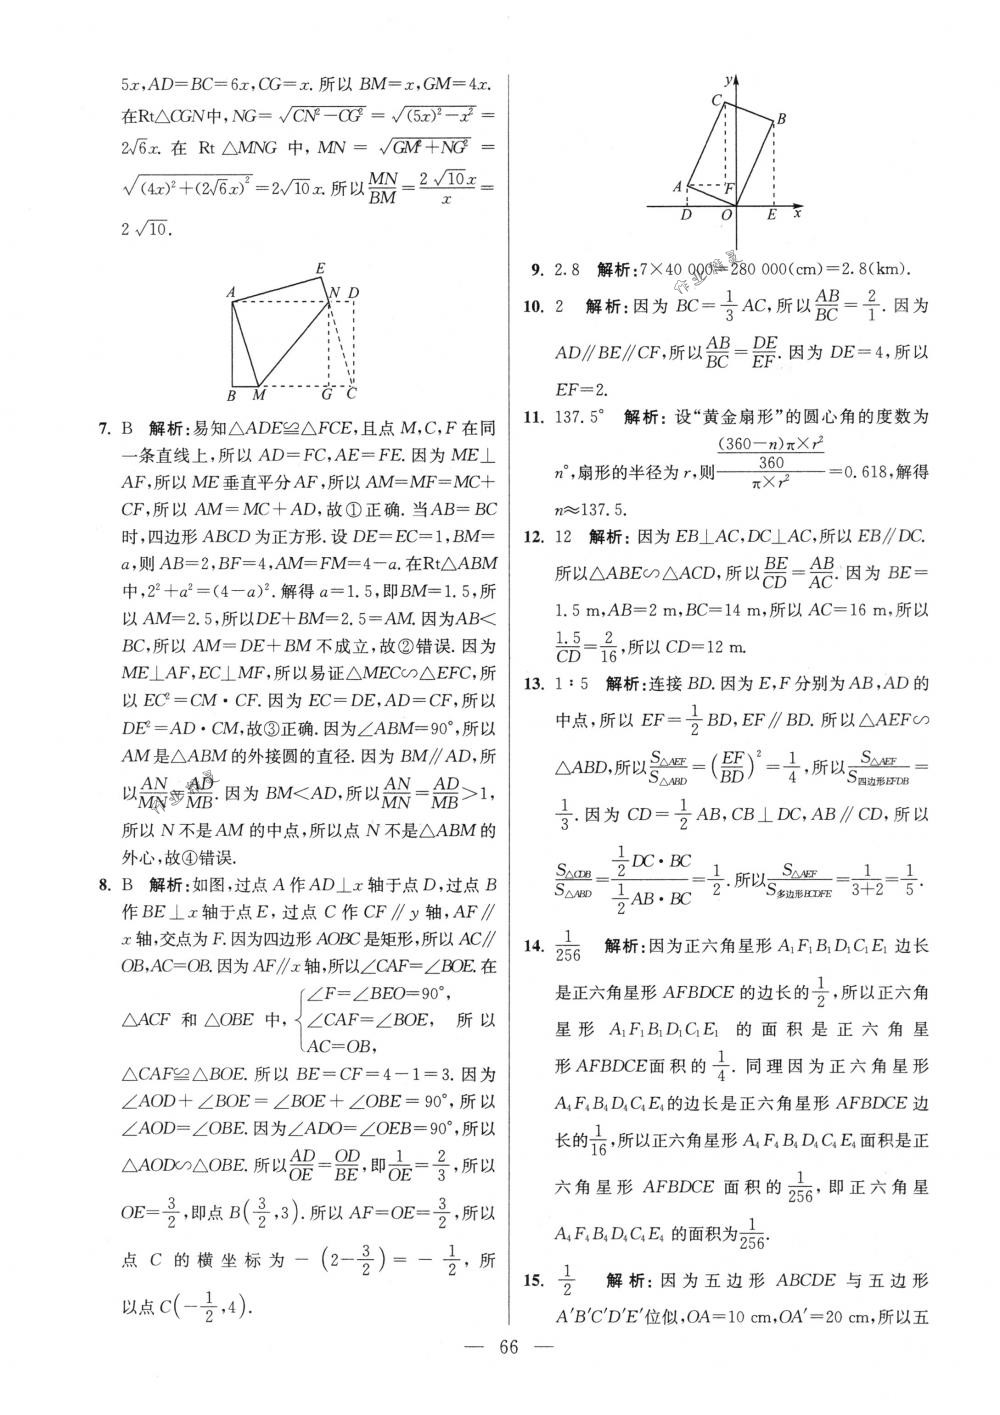 5x,AD=BC=6x,CG=x.所以 BM=x,GM=4x.
在Rt△CGN中,NG=√(CN²-CG²)=√((5x)²-x²)=
2√6x.在 Rt △MNG 中,MN=√(GM²+NG²)=
√((4x)²+(2√6x)²)=2√10x.所以MN/BM=2√10x/x=
2√10.
E
A N D
B M G C
7. B 解析:易知△ADE≌△FCE,且点 M,C,F 在同
一条直线上,所以 AD=FC,AE=FE.因为 ME⊥
AF,所以 ME 垂直平分 AF,所以 AM=MF=MC+
CF,所以 AM=MC+AD,故①正确.当AB=BC
时,四边形 ABCD 为正方形.设 DE=EC=1,BM=
a,则 AB=2,BF=4,AM=FM=4-a.在Rt△ABM
中,2²+a²=(4-a)².解得 a=1.5,即BM=1.5,所
以 AM=2.5,所以DE+BM=2.5=AM.因为AB<
BC,所以 AM=DE+BM 不成立,故②错误.因为
ME⊥AF,EC⊥MF,所以易证△MEC∽△EFC,所
以 EC²=CM·CF.因为 EC=DE,AD=CF,所以
DE²=AD·CM,故③正确.因为∠ABM=90°,所以
AM 是△ABM 的外接圆的直径.因为 BM∥AD,所
以AN/MN=AD/MB.因为 BM<AD,所以AN/MN=AD/MB>1,
所以 N 不是 AM 的中点,所以点 N 不是△ABM 的
外心,故④错误.
8. B 解析:如图,过点 A 作 AD⊥x 轴于点 D,过点 B
作 BE⊥x 轴于点 E,过点 C 作 CF∥y 轴,AF∥
x 轴,交点为 F.因为四边形 AOBC 是矩形,所以 AC∥
OB,AC=OB.因为 AF∥x 轴,所以∠CAF=∠BOE.在
△ACF 和 △OBE 中,{∠F=∠BEO=90°, ∠CAF=∠BOE, AC=OB, 所以
△CAF≌△BOE.所以 BE=CF=4-1=3.因为
∠AOD+∠BOE=∠BOE+∠OBE=90°,所以
∠AOD=∠OBE.因为∠ADO=∠OEB=90°,所以
△AOD∽△OBE.所以AD/OE=OD/BE,即1/OE=2/3,所以
OE=3/2,即点 B(3/2,3).所以 AF=OE=3/2,所以
点 C 的横坐标为-(2-3/2)=-1/2,所
以点 C(-1/2,4).
y
C
B
A F
D O E x
9. 2.8 解析:7×40 000=280 000(cm)=2.8(km).
10. 2 解析:因为 BC=1/3 AC,所以AB/BC=2/1.因为
AD∥BE∥CF,所以AB/BC=DE/EF.因为 DE=4,所以
EF=2.
11. 137.5° 解析:设“黄金扇形”的圆心角的度数为
n°,扇形的半径为 r,则((360-n)π×r²/360)/(π×r²)=0.618,解得
n≈137.5.
12. 12 解析:因为 EB⊥AC,DC⊥AC,所以 EB∥DC.
所以△ABE∽△ACD,所以BE/CD=AB/AC.因为 BE=
1.5 m,AB=2 m,BC=14 m,所以 AC=16 m,所以
1.5/CD=2/16,所以 CD=12 m.
13. 1∶5 解析:连接 BD.因为 E,F 分别为 AB,AD 的
中点,所以 EF=1/2 BD,EF∥BD.所以△AEF∽
△ABD,所以S△AEF/S△ABD=(EF/BD)²=1/4,所以S△AEF/S四边形EFDB=
1/3.因为 CD=1/2 AB,CB⊥DC,AB∥CD,所以
S△CDB/S△ABD=(1/2 DC·BC)/(1/2 AB·BC)=1/2.所以S△AEF/S多边形BCDFE=1/(3+2)=1/5.
14. 1/256 解析:因为正六角星形 A₁F₁B₁D₁C₁E₁ 边长
是正六角星形 AFBDCE 的边长的1/2,所以正六角
星形 A₁F₁B₁D₁C₁E₁ 的面积是正六角星
形AFBDCE面积的1/4.同理因为正六角星形
A₄F₄B₄D₄C₄E₄的边长是正六角星形 AFBDCE 边
长的1/16,所以正六角星形 A₄F₄B₄D₄C₄E₄面积是正
六角星形 AFBDCE 面积的1/256,即正六角星
A₄F₄B₄D₄C₄E₄ 的面积为1/256.
15. 1/2 解析:因为五边形 ABCDE 与五边形
A′B′C′D′E′位似,OA=10 cm,OA′=20 cm,所以五
— 66 —